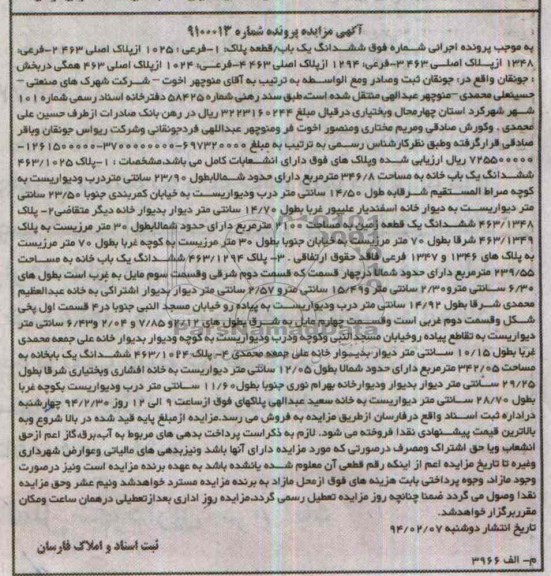 آگهی مزایده پرونده شماره ۹۱۰۰۰۱۳
به موجب پرونده اجرائی شماره فوق ششدانگ یک باب/قطعه پلاک: ۱-فرعی: ۱۰۲۵ ازپلاک اصلی ۴۶۳ ۲-فرعی:
۱۳۴۸ ازپلاک اصلی ۴۶۳ ۳-فرعی: ۱۲۹۴ ازپلاک اصلی ۴۶۳ ۴-فرعی: ۱۰۲۴ ازپلاک اصلی ۴۶۳ همگی دربخش
: جونقان واقع در: جونقان ثبت وصادر ومع الواسطه به ترتیب به آقای منوچهر اخوت – شرکت شهرک های صنعتی –
حسینعلی محمدی-منوچهر عبدالهی منتقل شده است، طبق سند رهنی شماره ۵۸۴۲۵ دفترخانه اسناد رسمی شماره ۱۰۱
شهر شهرکرد استان چهارمحال وبختیاری درقبال مبلغ ۳۲۲۳۱۶۰۲۴۴ ریال در رهن بانک صادرات ازطرف حسین علی
محمدی . وکورش صادقی ومریم مختاری ومنصور اخوت فر ومنوچهر عبداللهی فردجونقانی وشرکت ریواس جونقان وباقر
صادقی قرارگرفته وطبق نظرکارشناس رسمی به ترتیب به مبلغ ۶۹۷۳۲۰۰۰۰-۳۷۰۰۰۰۰۰۰۰-۱۲۶۱۵۰۰۰۰۰-
۷۲۵۵۰۰۰۰۰ ریال ارزیابی شده وپلاک های فوق دارای انشعابات کامل می باشد،مشخصات :۱-پلاک ۴۶۳/۱۰۲۵
ششدانگ یک باب خانه به مساحت ۳۴۶/۸ مترمربع دارای حدود شمالابطول ۲۳/۹۰ سانتی متردرب ودیواریست به
کوچه صراط المستقیم شرقابه طول ۱۴/۵۰ سانتی متر درب ودیواریست به خیابان کمربندی جنوبا ۲۳/۵۰ سانتی
متر دیواریست به دیوار خانه اسفندیار علیپور غربا بطول ۱۴/۷۰ سانتی متر دیوار بدیوار خانه دیگر متقاضی۲- پلاک
۴۶۳/۱۳۴۸ ششدانگ یک قطعه زمین به مساحت مترمربع دارای حدود شمالابطول ۳۰ متر مرزیست به پلاک
۴۶۳/۱۳۴۹ شرقا بطول ۷۰ متر مرزیست به خیابان جنوبا بطول ۳۰ متر مرزیست به کوچه غربا بطول ۷۰ متر مرزیست
به پلاک های ۱۳۴۶ و ۱۳۴۷ فرعی فاقد حقوق ارتفاقی . ۳- پلاک ۴۶۳/۱۲۹۴ ششدانگ یک باب خانه به مساحت
۲۳۹/۵۵ مترمربع دارای حدود شمالا درچهار قسمت که قسمت دوم شرقی وقسمت سوم مایل به غرب است بطول های
۶/۳۰ سانتی مترو۲/۳۰ سانتی متر و۱۵/۴۹ سانتی مترو ۲/۵۷ سانتی متر دیوار بدیوار اشتراکی به خانه عبدالعظیم
محمدی شرقا بطول ۱۴/۹۲ سانتی متر درب ودیواریست به پیاده رو خیابان مسجد النبی جنوبا در۴ قسمت اول پخی
شکل وقسمت دوم غربی است وقسمت چهارم مایل به شرق بطول های ۲/۱۲ و ۷/۸۵ و ۲/۰۴ و ۶/۴۳ سانتی متر
دیواریست به تقاطع پیاده روخیابان مسجدالنبی وکوچه ودرب ودیواریست به کوچه ودیوار بدیوار خانه علی جمعه محمدی
غربا بطول ۱۰/۱۵ سانتی متر دیوار بدیوار خانه علی جمعه محمدی ۴- پلاک ۴۶۳/۱۰۲۴ ششدانگ یک بابخانه به
مساحت ۳۴۲/۰۵ مترمربع دارای حدود شمالا بطول ۱۲/۰۵ سانتی متر دیوار بدیواریست به خانه افشاری وبختیاری شرقا بطول
۲۹/۲۵ سانتی متر دیوار بدیوار ودیوارخانه بهرام نوری جنوبا بطول ۱۱/۶۰ سانتی متر درب ودیواریست بکوچه غربا
بطول ۲۸/۷۰ سانتی متر دیواریست به خانه سعید عبدالهی پلاکهای فوق ازساعت ۹ الی ۱۲ روز ۹۴/۲/۳۰ چهارشنبه
دراداره ثبت اسناد واقع درفارسان ازطریق مزایده به فروش می رسد.مزایده ازمبلغ پایه قید شده در بالا شروع وبه
بالاترین قیمت پیشنهادی نقدا فروخته می شود. لازم به ذکراست پرداخت بدهی های مربوط به آب،برق،گاز اعم ازحق
انشعاب ویا حق اشتراک ومصرف درصورتی که مورد مزایده دارای آنها باشد ونیزبدهی های مالیاتی وعوارض شهرداری
وغیره تا تاریخ مزایده اعم از اینکه رقم قطعی آن معلوم شده یانشده باشد به عهده برنده مزایده است ونیز درصورت
وجود مازاد، وجوه پرداختی بابت هزینه های فوق ازمحل مازاد به برنده مزایده مسترد خواهدشد ونیم عشر وحق مزایده
نقدا وصول می گردد ضمنا چنانچه روز مزایده تعطیل رسمی گردد،مزایده روز اداری بعدازتعطیلی درهمان ساعت ومکان
مقرربرگزار خواهدشد.
تاریخ انتشار دوشنبه ۹۴/۰۲/۰۷
ثبت اسناد و املاک فارسان
م- الف ۳۹۶۶